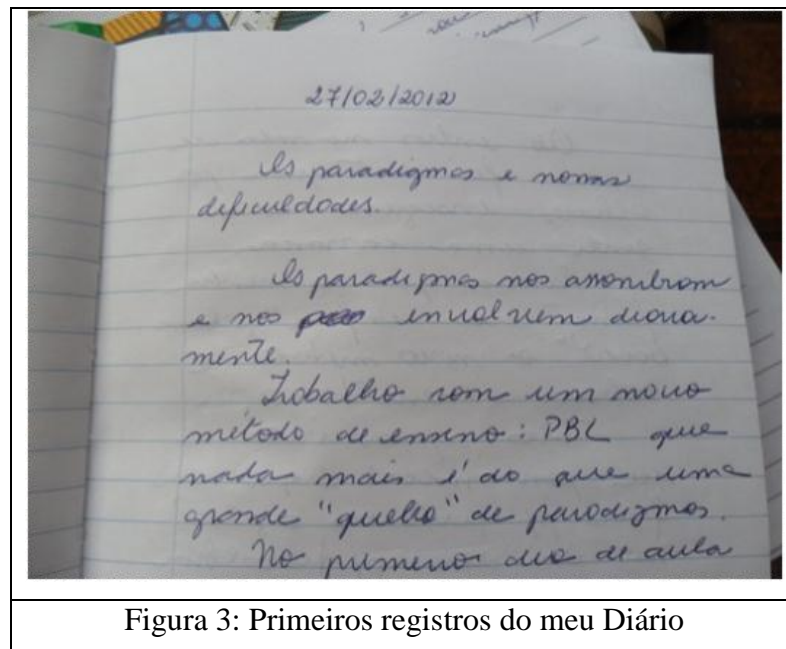 27/02/2012
Os paradigmas e nossas
dificuldades.
Os paradigmas nos assombram
e nos envolvem diaria-
mente.
Trabalho com um novo
método de ensino: PBL que
nada mais é do que uma
grande "quebra" de paradigmas.
No primeiro dia de aula
Figura 3: Primeiros registros do meu Diário